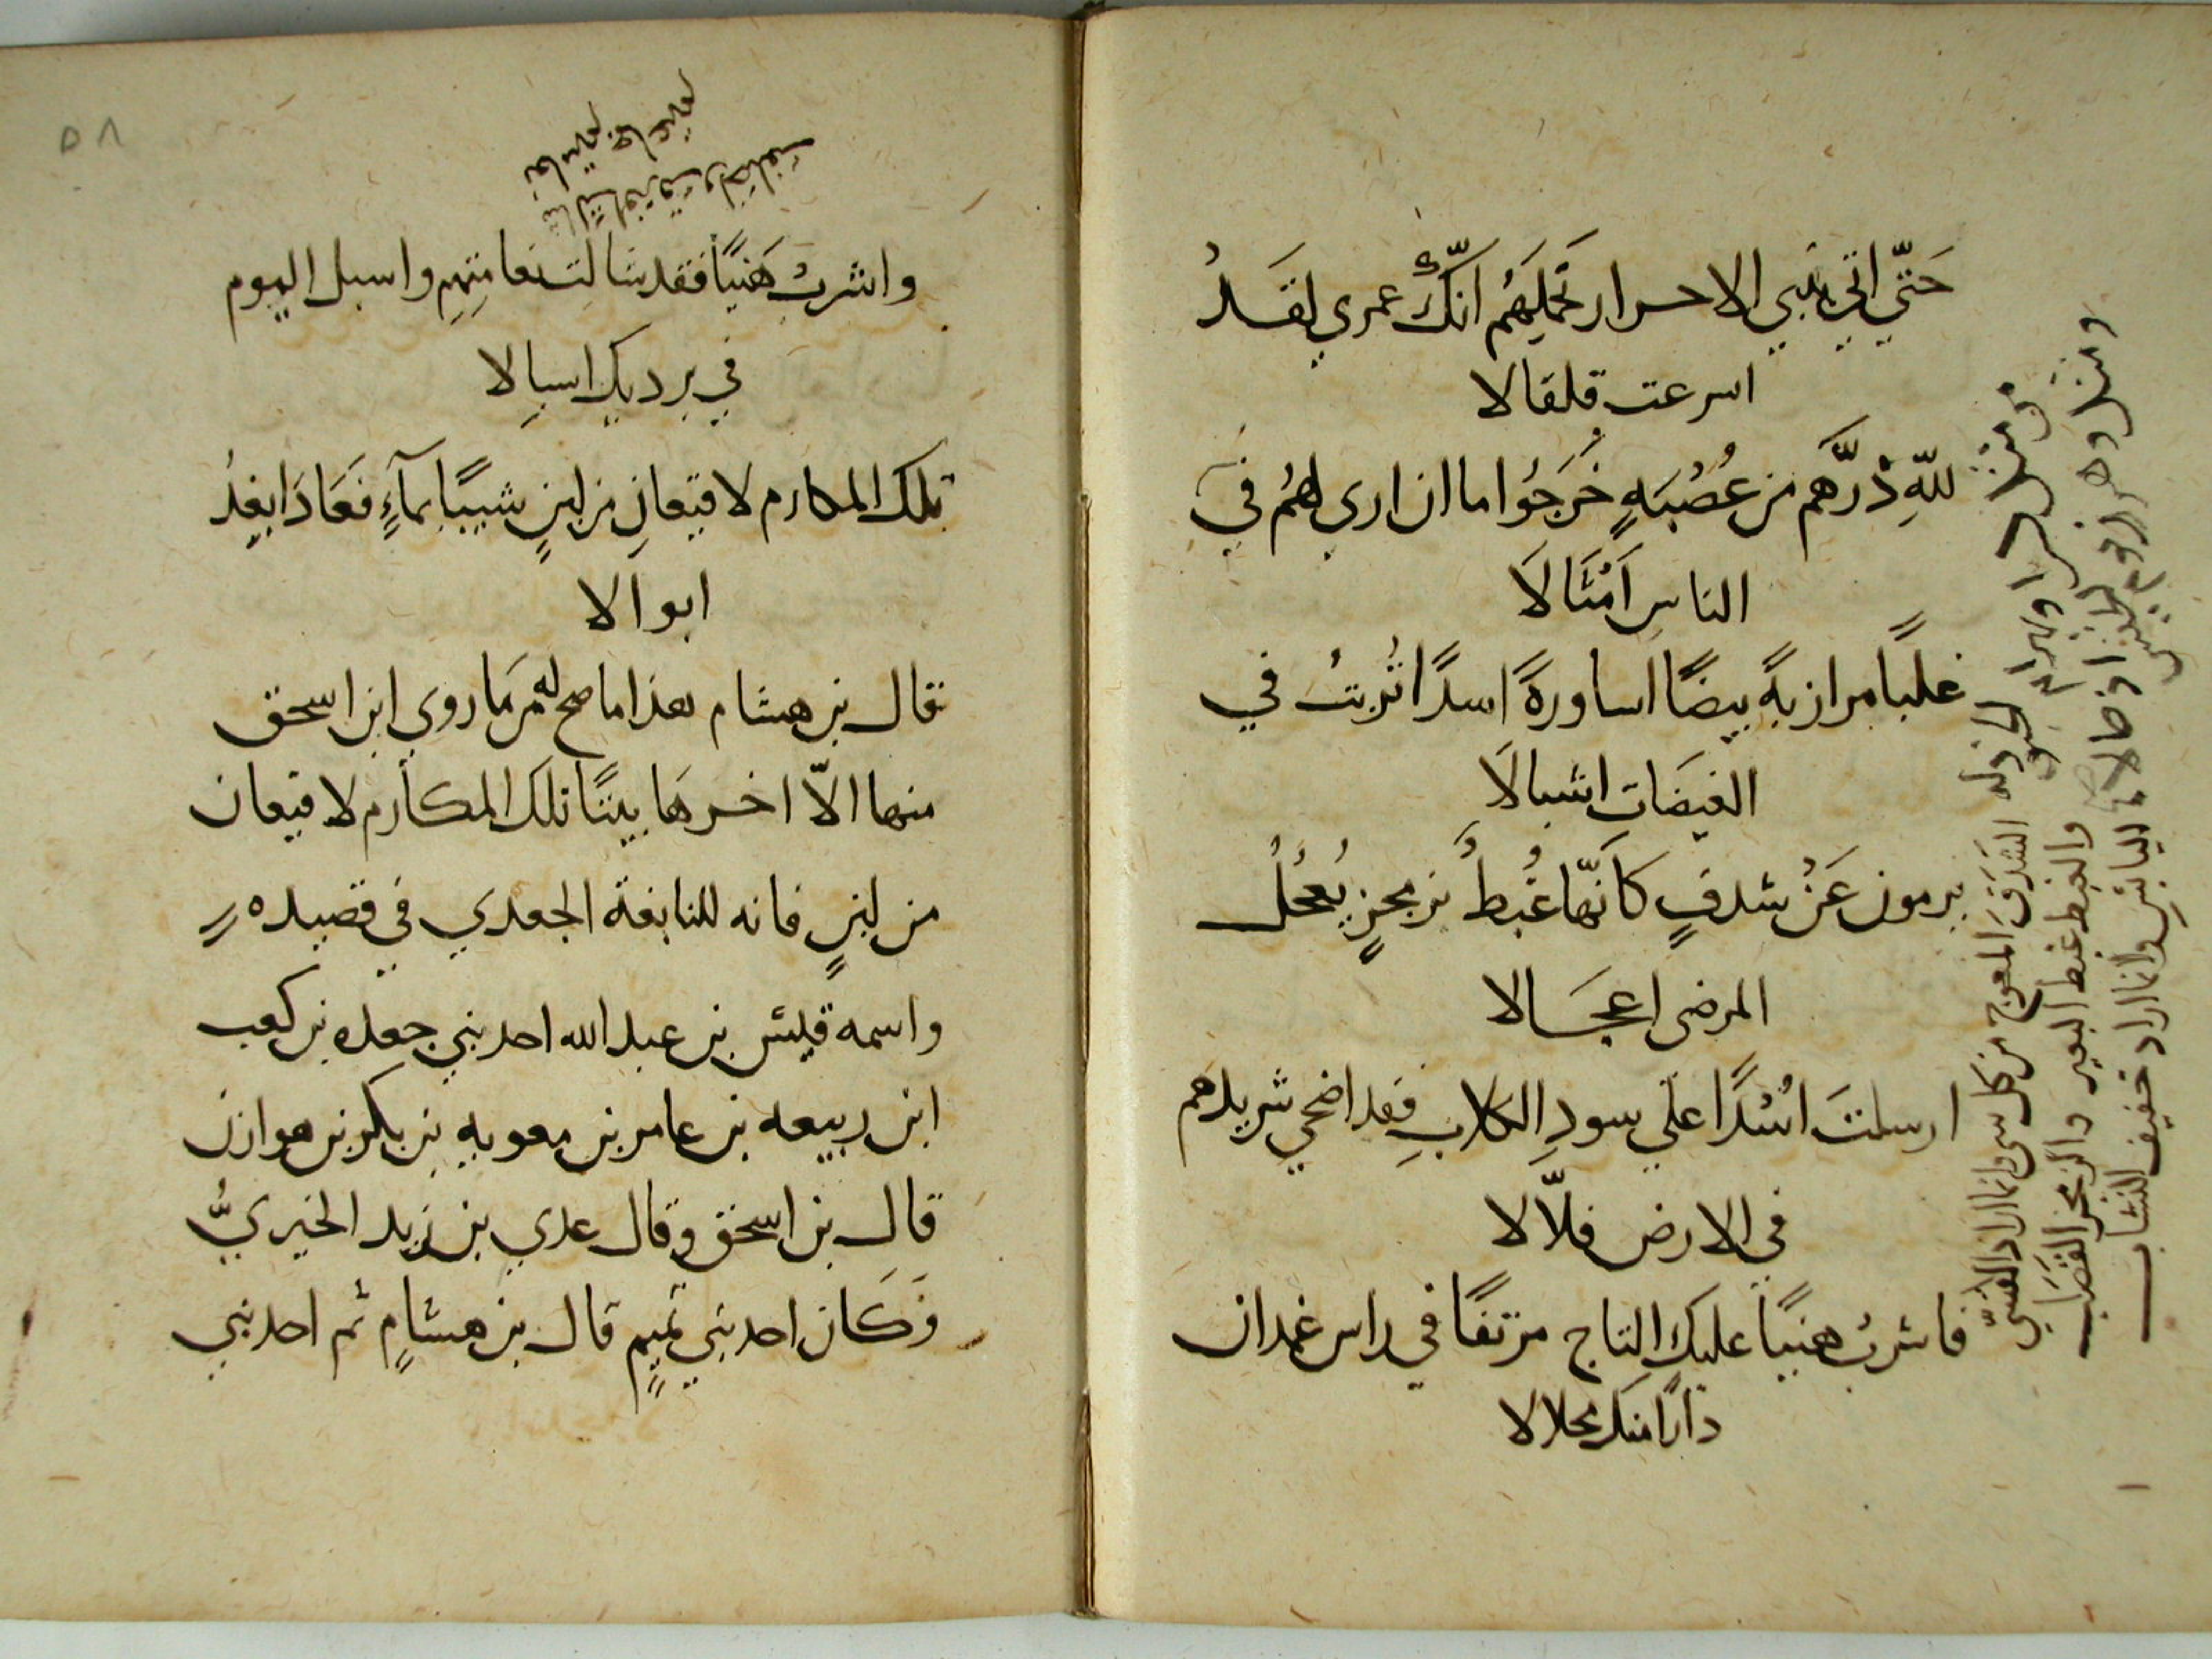 حَتّي اتي ببني الاحرار تَحمِلهُم انّكَ عمري لقَدْ
اسرعت قلقالا
للهِ دَرَّهم من عُصْبَهٍ خَرَجُوا ما ان اري لهُم في
الناسِ اَمْثَالَا
غلبًا مرازبةً بيضًا اساورةً اسدًا تُربتُ في
الغيضَاتِ اشبالَا
يرمون عَنْ شدفٍ كَانّها غُبطُ بزمجرٍ يُعْجلُ
المرضى اعجَالا
ارسلتَ اسْدًا علي سودِ الكلابِ فقد اضحي شريدهم
في الارض فلاّلا
فاشربْ هنيًا عليكَ التاج مرتفقًا في راس غمدان
دارًا منك محلالا
الشدَفَ المعوج من كل شي وانما اراد القسيّ
والغبط غبط البعير والزمجر القصَب
اليابس وانما اراد خفيف النشاب
واشربْ هَنيًا فقد شالت نعامتهم واسبل اليوم
في برديك اسبالا
شالت
نعامتهم
تلك المكارم لا قعبانِ من لبنٍ شيبًا بمآءٍ فعَادَا بعدُ
ابوالا
قال بن هشام هذا ما صح له مّما روي ابن اسحق
منها الاّ اخرهَا بيتًا تلك المكارم لا قعبان
من لبنٍ فانه للنابغة الجعدي في قصيده
واسمه قيس بن عبد الله احد بني جعده بن كعب
ابن ربيعه بن عامر بن معويه بن بكر بن هوازن
قال بن اسحق وقال عدي بن زيد الحيريُّ
وَكَان احد بني تميمٍ قال بن هشامٍ ثم احد بني
٥٨